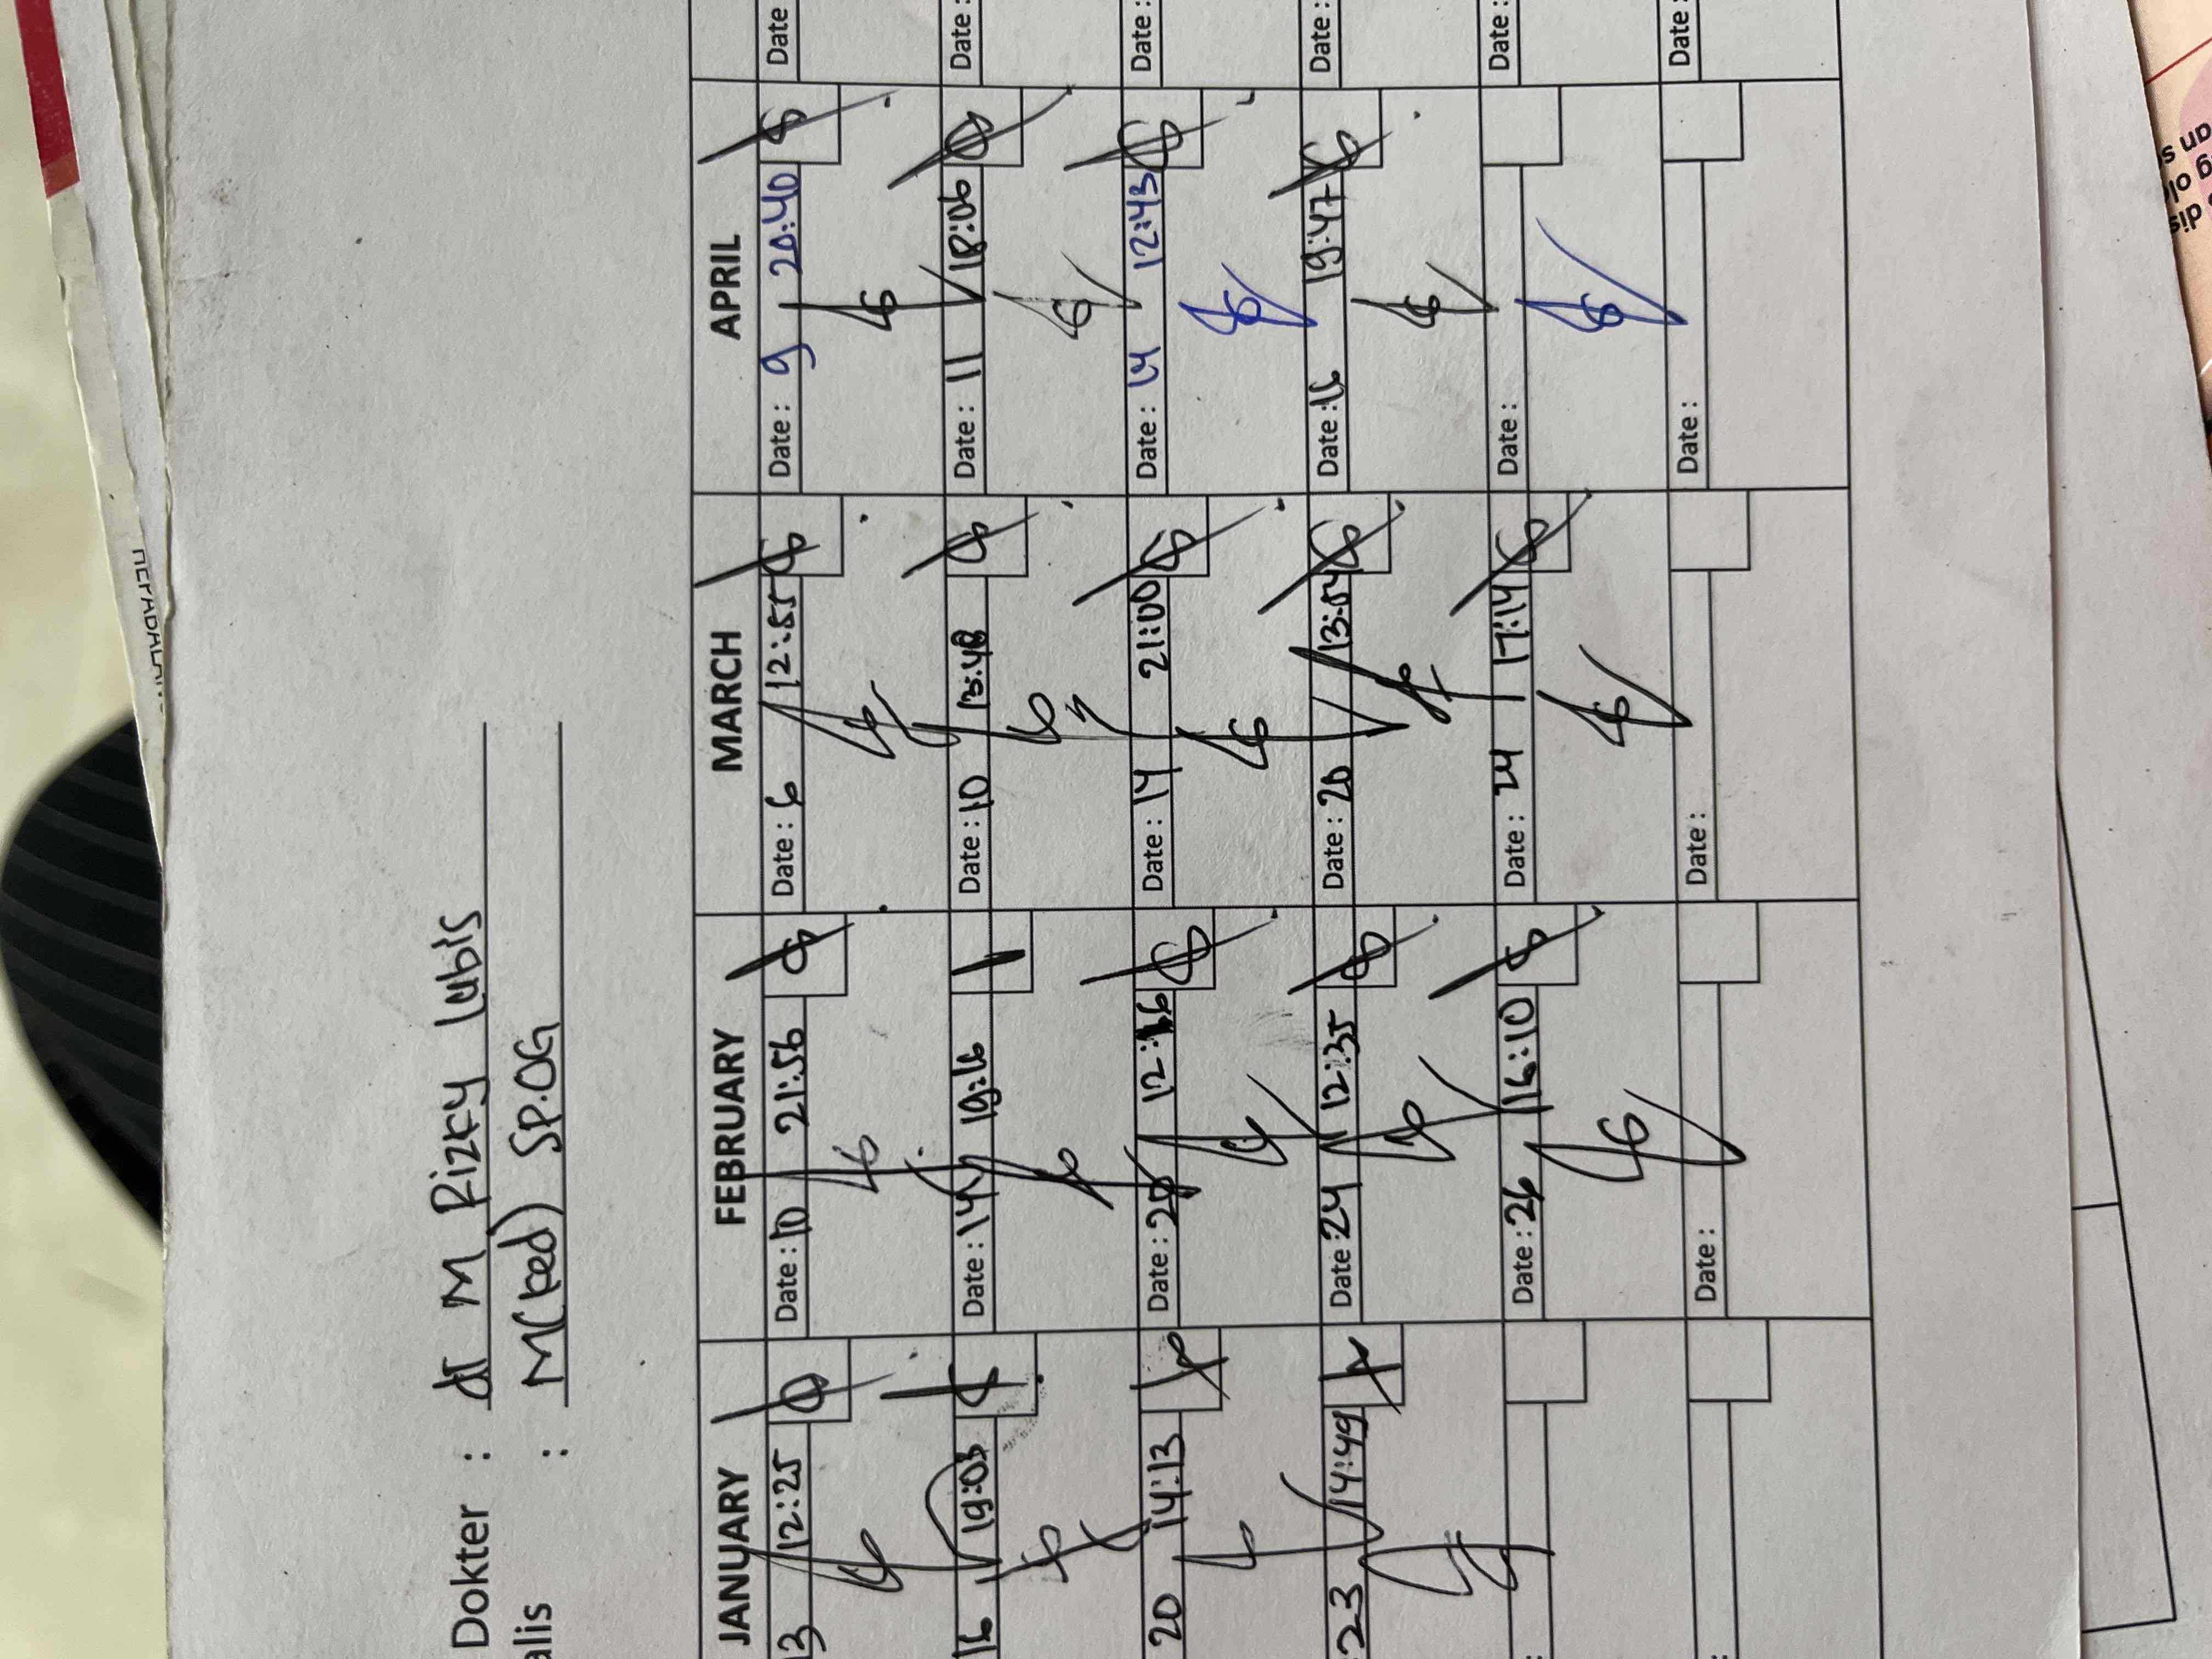 Dokter : dr M Rizky Lubis
alis : M(ked) SP.OG
JANUARY FEBRUARY MARCH APRIL
13 12:25 Date : 10 21:56 Date : 6 12:55 Date : 9 20:40 Date
16 19:03 Date : 14 19:16 Date : 10 13:48 Date : 11 18:06 Date :
20 14:13 Date : 12:16 Date : 14 21:00 Date : 14 12:43 Date :
23 14:49 Date : 24 12:35 Date : 20 13:54 Date : 16 19:47 Date :
: Date : 26 16:10 Date : 24 17:14 Date : Date :
: Date : Date : Date : Date :